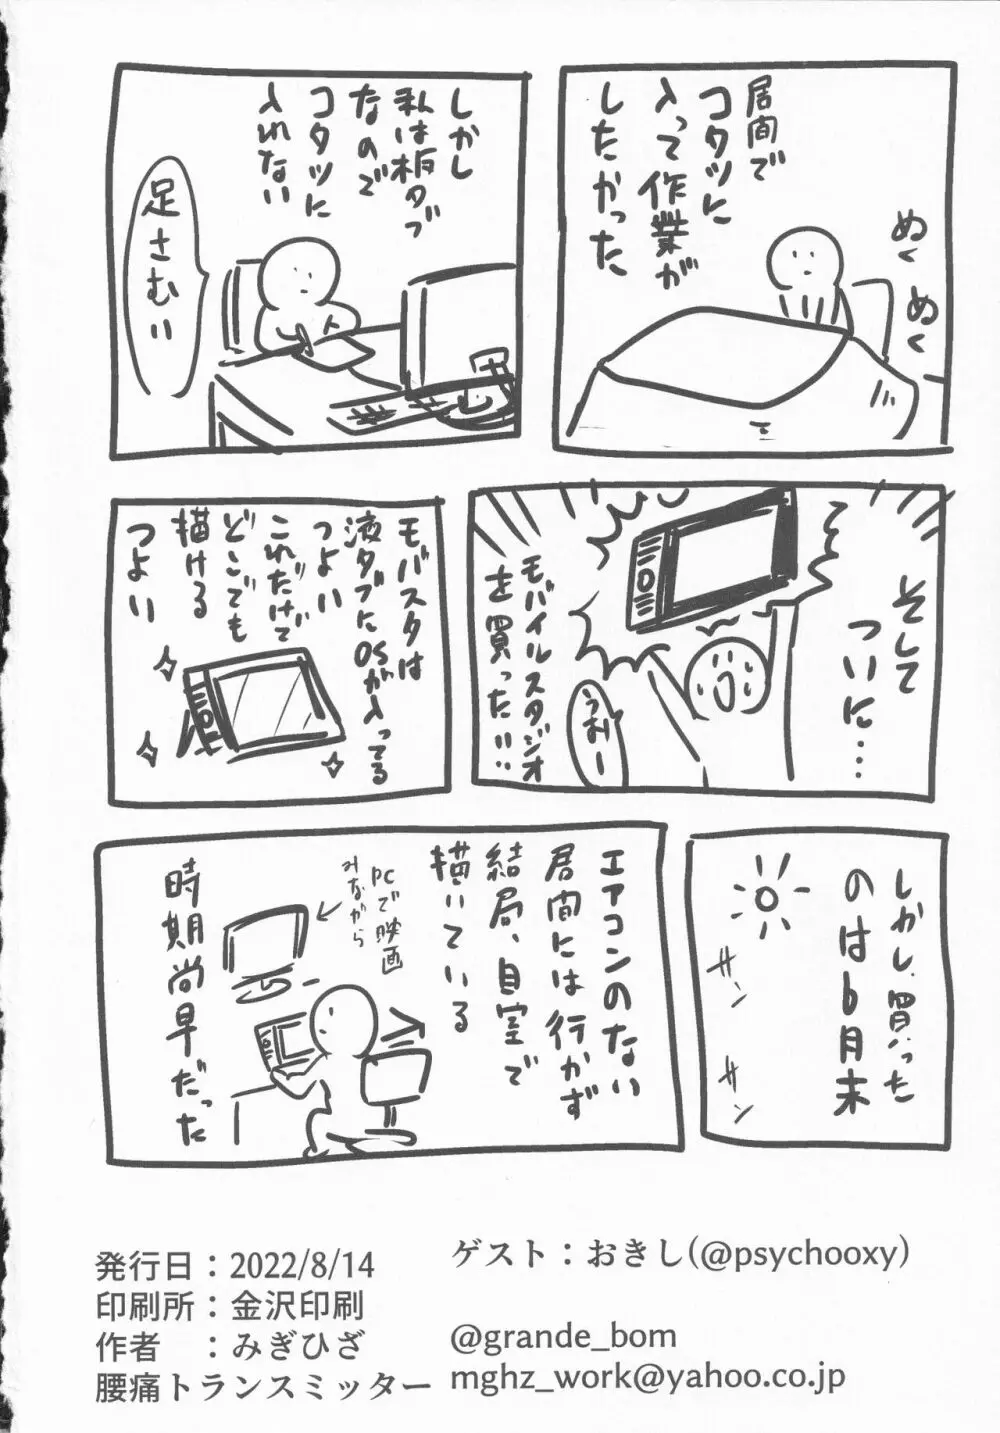 居間で
コタツに
入って作業が
したかった
ぬく
ぬく
しかし
私は板タブ
なので
コタツに
入れない
足さむい
そして
ついに…
モバイルスタジオ
を買った!!
うおー
モバスタは
液タブにOSが入ってる
つよい
これだけで
どこでも
描ける
つよい
しかし、買った
のは6月末
サン
サン
エアコンのない
居間には行かず
結局、自室で
描いている
PCで映画
みながら
時期尚早だった
発行日：2022/8/14
印刷所：金沢印刷
作者　：みぎひざ
腰痛トランスミッター
ゲスト：おきし(@psychooxy)
@grande_bom
mghz_work@yahoo.co.jp